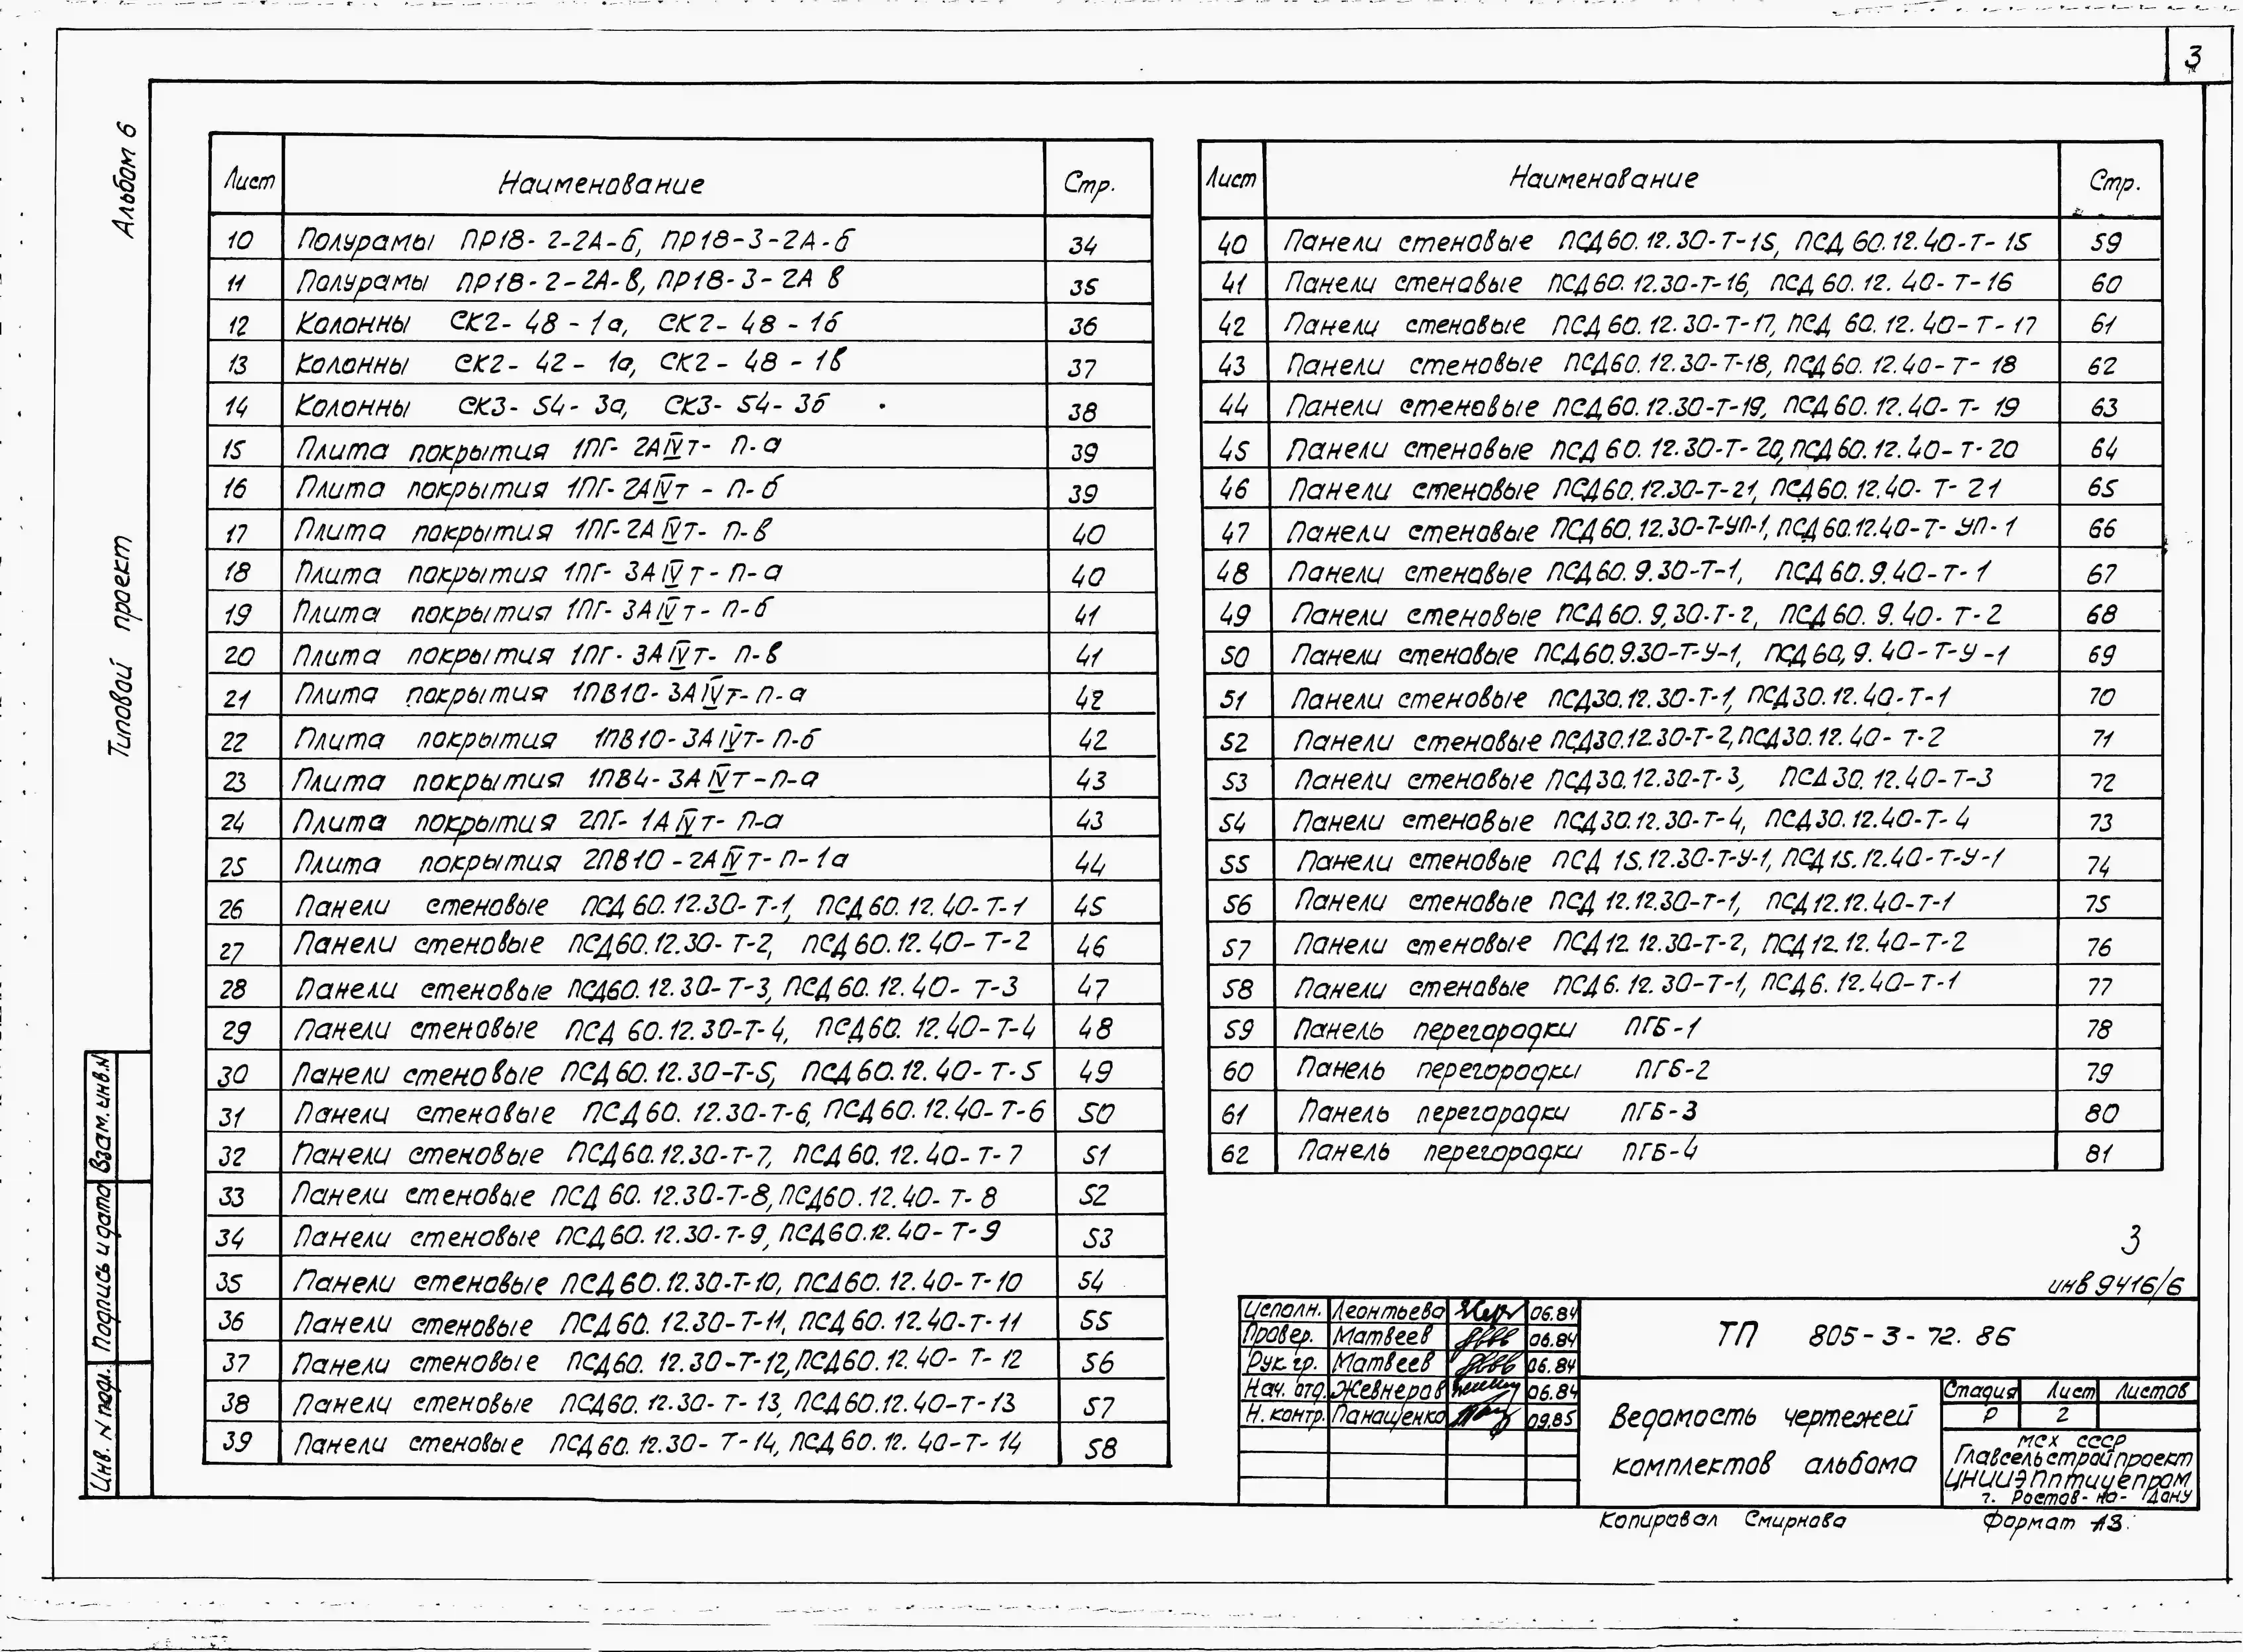 3
Альбом 6
Типовой проект
Лист Наименование Стр.
10 Полурамы ПР18-2-2А-б, ПР18-3-2А-б 34
11 Полурамы ПР18-2-2А-в, ПР18-3-2А в 35
12 Колонны СК2-48-1а, СК2-48-1б 36
13 Колонны СК2-42-1а, СК2-48-1в 37
14 Колонны СК3-54-3а, СК3-54-3б 38
15 Плита покрытия 1ПГ-2АIVт-П-а 39
16 Плита покрытия 1ПГ-2АIVт-П-б 39
17 Плита покрытия 1ПГ-2АIVт-П-в 40
18 Плита покрытия 1ПГ-3АIVт-П-а 40
19 Плита покрытия 1ПГ-3АIVт-П-б 41
20 Плита покрытия 1ПГ-3АIVт-П-в 41
21 Плита покрытия 1ПВ10-3АIVт-П-а 42
22 Плита покрытия 1ПВ10-3АIVт-П-б 42
23 Плита покрытия 1ПВ4-3АIVт-П-а 43
24 Плита покрытия 2ПГ-1АIVт-П-а 43
25 Плита покрытия 2ПВ10-2АIVт-П-1а 44
26 Панели стеновые ПСД60.12.30-Т-1, ПСД60.12.40-Т-1 45
27 Панели стеновые ПСД60.12.30-Т-2, ПСД60.12.40-Т-2 46
28 Панели стеновые ПСД60.12.30-Т-3, ПСД60.12.40-Т-3 47
29 Панели стеновые ПСД60.12.30-Т-4, ПСД60.12.40-Т-4 48
30 Панели стеновые ПСД60.12.30-Т-5, ПСД60.12.40-Т-5 49
31 Панели стеновые ПСД60.12.30-Т-6, ПСД60.12.40-Т-6 50
32 Панели стеновые ПСД60.12.30-Т-7, ПСД60.12.40-Т-7 51
33 Панели стеновые ПСД60.12.30-Т-8, ПСД60.12.40-Т-8 52
34 Панели стеновые ПСД60.12.30-Т-9, ПСД60.12.40-Т-9 53
35 Панели стеновые ПСД60.12.30-Т-10, ПСД60.12.40-Т-10 54
36 Панели стеновые ПСД60.12.30-Т-11, ПСД60.12.40-Т-11 55
37 Панели стеновые ПСД60.12.30-Т-12, ПСД60.12.40-Т-12 56
38 Панели стеновые ПСД60.12.30-Т-13, ПСД60.12.40-Т-13 57
39 Панели стеновые ПСД60.12.30-Т-14, ПСД60.12.40-Т-14 58
Лист Наименование Стр.
40 Панели стеновые ПСД60.12.30-Т-15, ПСД60.12.40-Т-15 59
41 Панели стеновые ПСД60.12.30-Т-16, ПСД60.12.40-Т-16 60
42 Панели стеновые ПСД60.12.30-Т-17, ПСД60.12.40-Т-17 61
43 Панели стеновые ПСД60.12.30-Т-18, ПСД60.12.40-Т-18 62
44 Панели стеновые ПСД60.12.30-Т-19, ПСД60.12.40-Т-19 63
45 Панели стеновые ПСД60.12.30-Т-20, ПСД60.12.40-Т-20 64
46 Панели стеновые ПСД60.12.30-Т-21, ПСД60.12.40-Т-21 65
47 Панели стеновые ПСД60.12.30-Т-УП-1, ПСД60.12.40-Т-УП-1 66
48 Панели стеновые ПСД60.9.30-Т-1, ПСД60.9.40-Т-1 67
49 Панели стеновые ПСД60.9,30-Т-2, ПСД60.9.40-Т-2 68
50 Панели стеновые ПСД60.9.30-Т-У-1, ПСД60,9.40-Т-У-1 69
51 Панели стеновые ПСД30.12.30-Т-1, ПСД30.12.40-Т-1 70
52 Панели стеновые ПСД30.12.30-Т-2, ПСД30.12.40-Т-2 71
53 Панели стеновые ПСД30.12.30-Т-3, ПСД30.12.40-Т-3 72
54 Панели стеновые ПСД30.12.30-Т-4, ПСД30.12.40-Т-4 73
55 Панели стеновые ПСД15.12.30-Т-У-1, ПСД15.12.40-Т-У-1 74
56 Панели стеновые ПСД12.12.30-Т-1, ПСД12.12.40-Т-1 75
57 Панели стеновые ПСД12.12.30-Т-2, ПСД12.12.40-Т-2 76
58 Панели стеновые ПСД6.12.30-Т-1, ПСД6.12.40-Т-1 77
59 Панель перегородки ПГБ-1 78
60 Панель перегородки ПГБ-2 79
61 Панель перегородки ПГБ-3 80
62 Панель перегородки ПГБ-4 81
Взам. инв. N
Подпись и дата
Инв. N подл.
3
инв 9416/6
Исполн. Леонтьева 06.84
Провер. Матвеев 06.84
Рук. гр. Матвеев 06.84
Нач. отд. Жевнеров 06.84
Н. контр. Панащенко 09.85
ТП 805-3-72.86
Ведомость чертежей
комплектов альбома
Стадия Лист Листов
Р 2
МСХ СССР
Главсельстройпроект
ЦНИИЭПптицепром
г. Ростов-на-Дону
Копировал Смирнова Формат А3